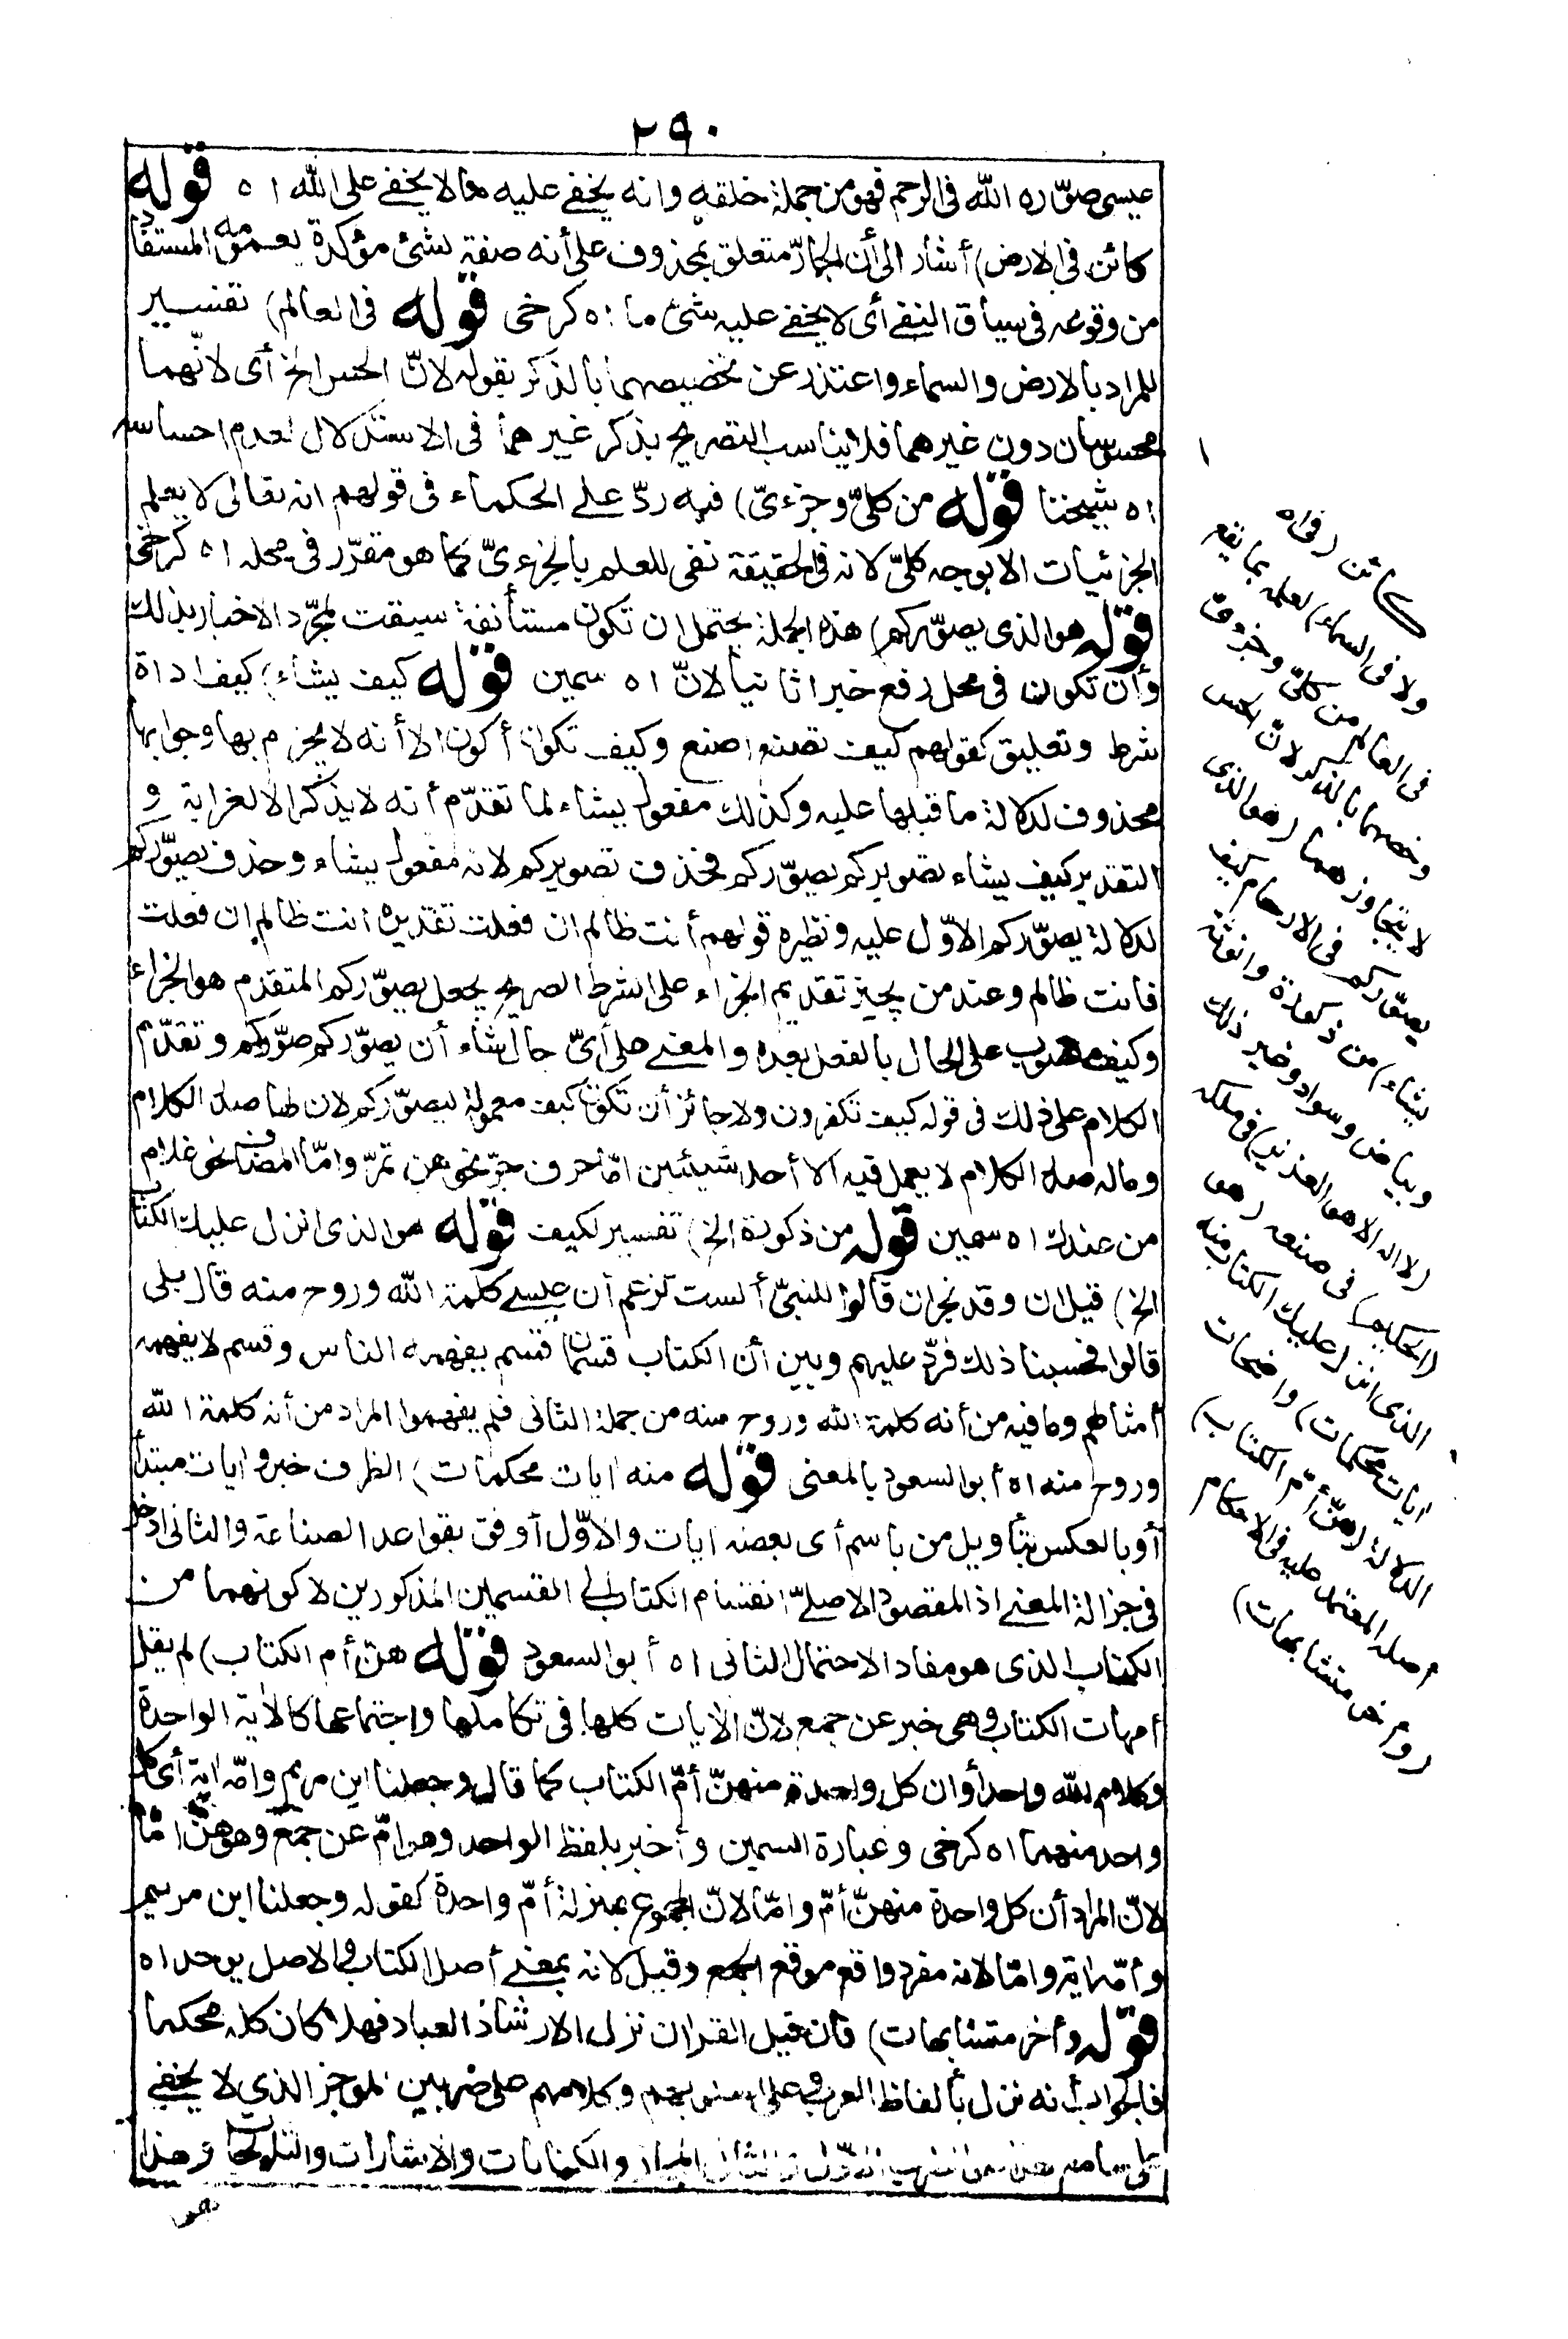 ٢٩٠
عيسى صوّره الله فى الرحم فهو من جملة خلقه وانه يخفى عليه مالا يخفى على الله اه قوله
كائن فى الارض) أشار الى أن الجارّ متعلق بمحذوف على أنه صفة لشئ مؤكدة لعمومه المستفاد
من وقوعه فى سياق النفى أى لا يخفى عليه شئ ما اه كرخى قوله فى العالم) تفسير
للمراد بالارض والسماء واعتذر عن تخصيصهما بالذكر بقوله لانّ الحس الخ أى لانّهما
محسوسان دون غيرهما فلا يناسب التصريح بذكر غيرهما فى الاستدلال لعدم احساسه
اه شيخنا قوله من كلىّ وجزءىّ) فيه ردّ على الحكماء فى قولهم انه تعالى لا يعلم
الجزئيات الا بوجه كلىّ لانه فى الحقيقة نفى للعلم بالجزءىّ كما هو مقرّر فى محله اه كرخى
قوله هو الذى يصوّركم) هذه الجملة يحتمل ان تكون مستأنفة سيقت لمجرّد الاخبار بذلك
وأن تكون فى محل رفع خبرا ثانيا لانّ اه سمين قوله كيف يشاء) كيف اداة
شرط وتعليق كقولهم كيف تصنع اصنع وكيف تكون أكون الا أنه لا يجزم بها وجوابها
محذوف لدلالة ما قبلها عليه وكذلك مفعول يشاء لما تقدّم أنه لا يذكر الا لغرابة و
التقدير كيف يشاء تصويركم يصوّركم فحذف تصويركم لانه مفعول يشاء وحذف يصوّركم
لدلالة يصوّركم الاوّل عليه ونظيره قولهم أنت ظالم ان فعلت تقديره انت ظالم ان فعلت
فانت ظالم وعند من يجيز تقديم الجزاء على الشرط الصريح يجعل يصوّركم المتقدم هو الجزاء
وكيف منصوب على الحال بالفعل بعده والمعنى على أىّ حال شاء أن يصوّركم صوّركم وتقدّم
الكلام على ذلك فى قوله كيف تكفرون ولا جائز أن تكون كيف معمولة ليصوّركم لان لها صدر الكلام
وماله صدر الكلام لا يعمل فيه الا أحد شيئين امّا حرف جرّ نحو بمن تمرّ وامّا المضاف نحو غلام
من عندك اه سمين قوله من ذكورة الخ) تفسير لكيف قوله هو الذى انزل عليك الكتاب
الخ) قيل ان وفد نجران قالوا للنبىّ ألست تزعم أن عيسى كلمة الله وروح منه قال بلى
قالوا فحسبنا ذلك فردّ عليهم وبين أن الكتاب قسمان قسم يفهمه الناس وقسم لا يفهمه
أمثالهم وما فيه من أنه كلمة الله وروح منه من جملة الثانى فلم يفهموا المراد من أنه كلمة الله
وروح منه اه أبو السعود بالمعنى قوله منه ايات محكمات) الظرف خبر وايات مبتدأ
أو بالعكس بتأويل من باسم أى بعضه ايات والاوّل أوفق بقواعد الصناعة والثانى ادخل
فى جزالة المعنى اذ المقصود الاصلىّ انقسام الكتاب الى القسمين المذكورين لا كونهما من
الكتاب الذى هو مفاد الاحتمال الثانى اه أبو السعود قوله هنّ أم الكتاب) لم يقل
أمهات الكتاب وهى خبر عن جمع لانّ الايات كلها فى تكاملها واجتماعها كالاية الواحدة
وكلام الله واحد أو ان كل واحدة منهنّ أمّ الكتاب كما قال وجعلنا ابن مريم وامّه اية أى كل
واحد منهما اه كرخى وعبارة السمين وأخبر بلفظ الواحد وهو امّ عن جمع وهو هنّ امّا
لانّ المراد أن كل واحدة منهنّ أمّ وامّا لانّ المجموع بمنزلة أمّ واحدة كقوله وجعلنا ابن مريم
وأمّه اية وامّا لانه مفرد واقع موقع الجمع وقيل لانه بمعنى أصل الكتاب والاصل يوحد اه
قوله وأخر متشابهات) فان قيل القران نزل لارشاد العباد فهلا كان كله محكما
فالجواب أنه نزل بألفاظ العرب وعلى اسلوبهم وكلامهم على ضربين الموجز الذى لا يخفى
على سامعه والكنايات والاشارات والتلويحات وهذا
كائن (فى اه
ولا فى السماء) لعلمه بما يقع
فى العالم من كلىّ وجزءىّ
وخصهما بالذكر لانّ الحس
لا يتجاوزهما (هو الذى
يصوّركم فى الارحام كيف
يشاء) من ذكورة وانوثة
وبياض وسواد وغير ذلك
(لا اله الا هو العزيز) فى ملكه
(الحكيم) فى صنعه (هو
الذى انزل عليك الكتاب منه
ايات محكمات) واضحات
الدلالة (هنّ أمّ الكتاب)
أصله المعتمد عليه فى الاحكام
(وأخر متشابهات)